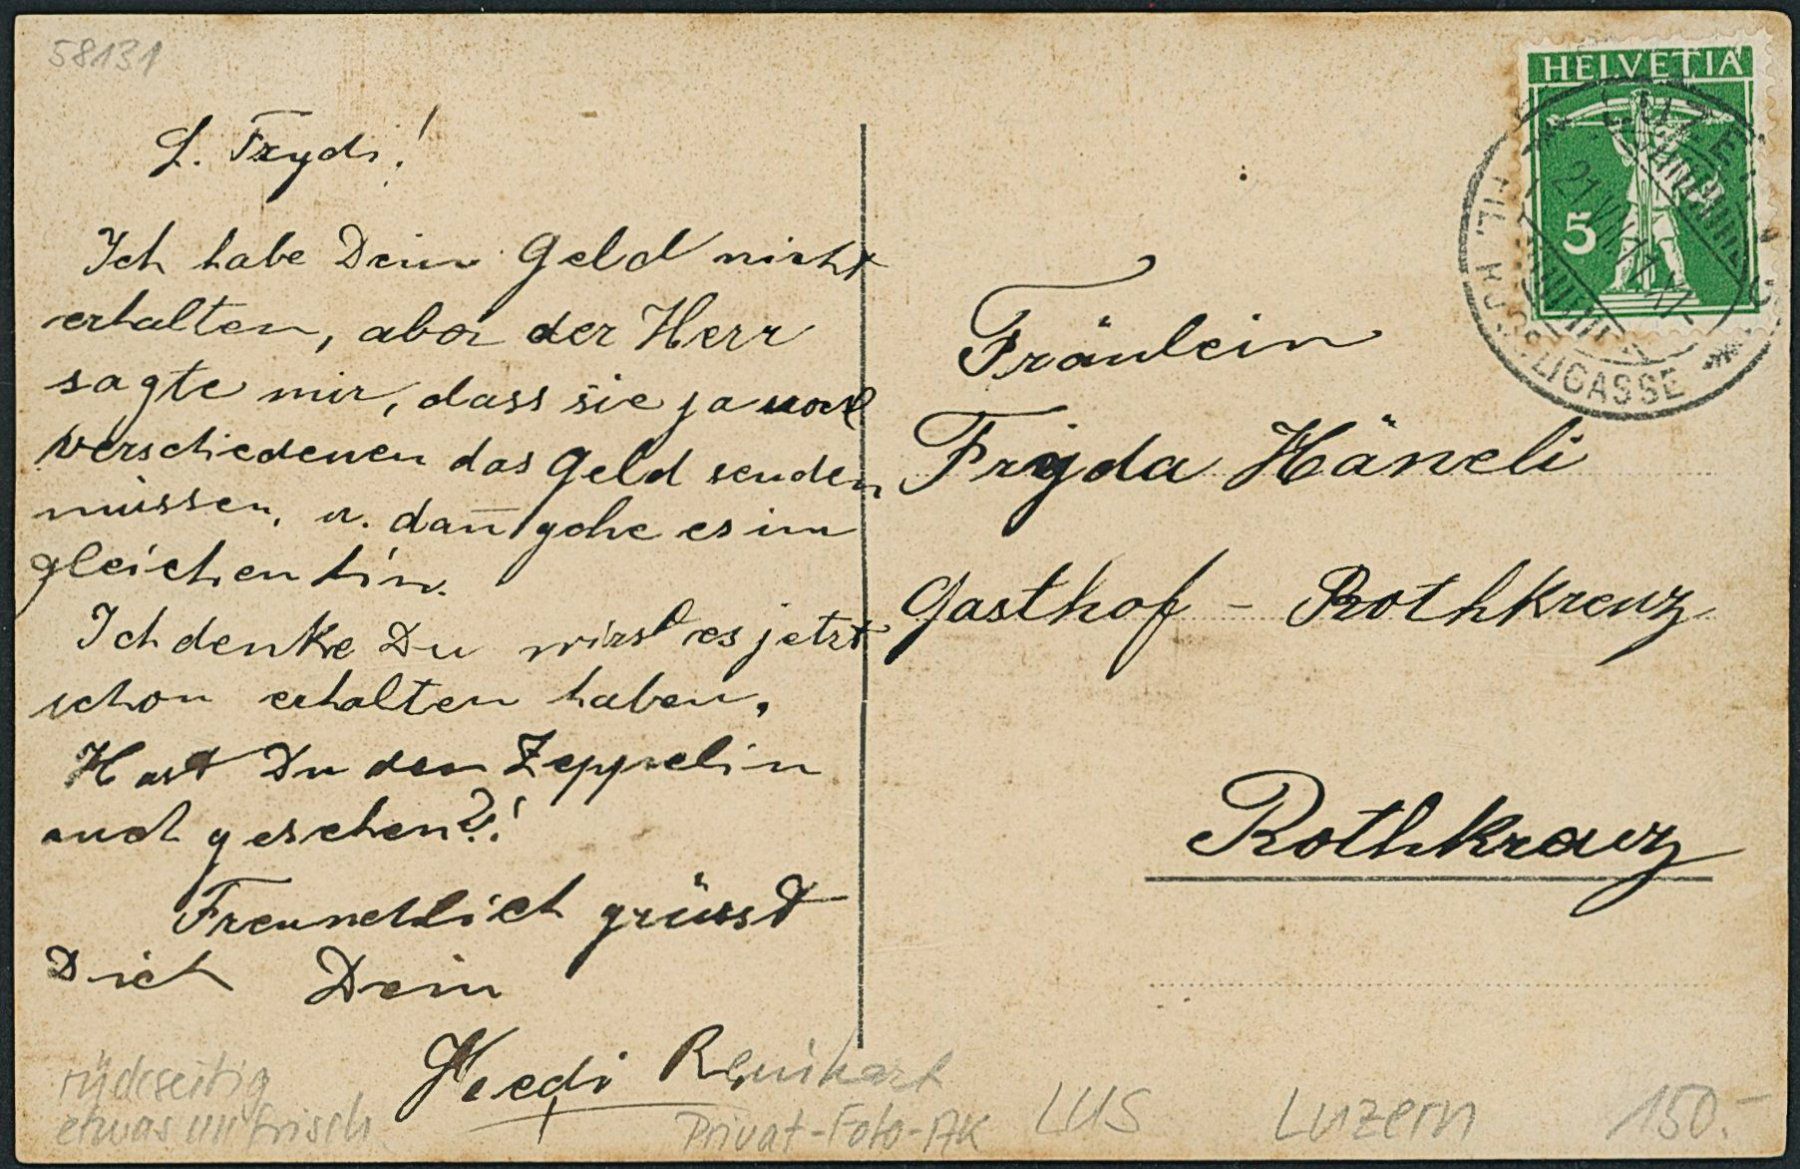 58131
HELVETIA
5
LUZERN
FIL. HIRSCHLIGASSE
L. Frydi!
Ich habe Dein Geld nicht
erhalten, aber der Herr
sagte mir, dass sie ja noch
verschiedenen das Geld senden
müssen, u. dan̄ gehe es im
gleichen hin.
Ich denke Du wirst es jetzt
schon erhalten haben.
Hast Du den Zeppelin
auch gesehen?!
Freundlich grüsst
Dich Dein
Heedi Reinhart
Fräulein
Frÿda Häneli
Gasthof - Rothkreuz
Rothkreuz
rückseitig
etwas unfrisch
Privat-Foto-AK
LUS
Luzern
150.-